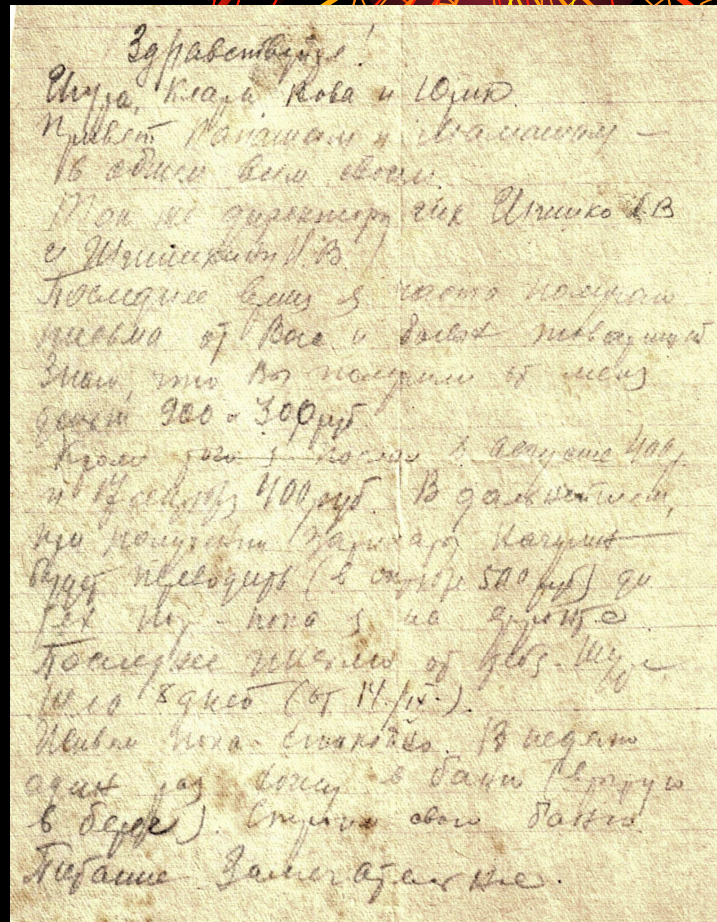 Здравствуйте!
Шура, Клара Кова и Юрик.
Привет Папашам и Мамашам —
в общем всем своим.
Так же директору
и
Последнее время я часто получаю
письма от Вас и
Знаю, что Вы получили от меня
денег 900 и 300 руб
Кроме того я послал в августе 400 р
и 17 сентября 400 руб. В дальнейшем,
при получении
будет переводить (в октябре 500 руб) до
тех пор - пока я на фронте.
Последнее письмо от тебя - Шура
шло 8 дней (от 14/IX-).
Живем пока - спокойно. В неделю
один раз хожу в баню (
в бане). свою баню.
Питание Замечательное.